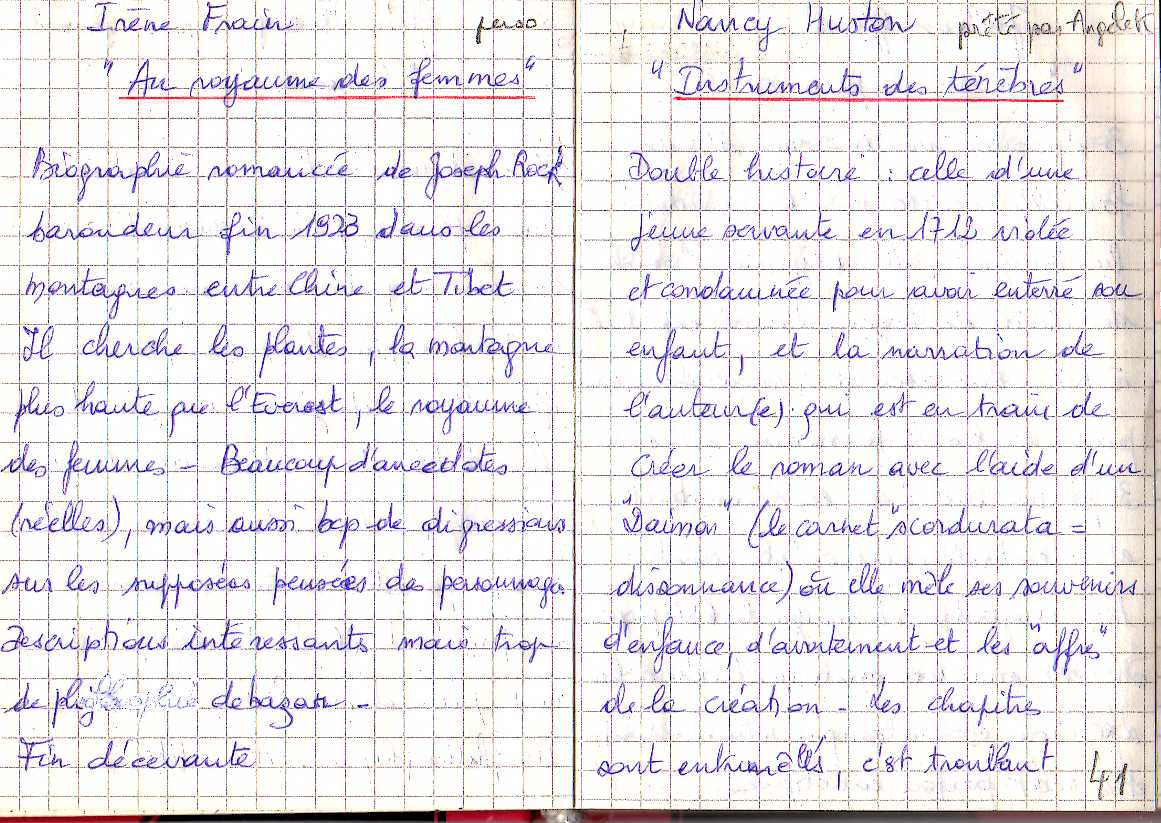 Irène Frain perso
"Au royaume des femmes"
Biographie romancée de Joseph Rock
baroudeur fin 1923 dans les
montagnes entre Chine et Tibet
Il cherche les plantes, la montagne
plus haute que l'Everest, le royaume
des femmes - Beaucoup d'anecdotes
(réelles), mais aussi bcp de digressions
sur les supposées pensées des personnages
Descriptions intéressants mais trop
de philosophie de bazar -
Fin décevante
Nancy Huston prêté par Angelek
"Instruments des ténèbres"
Double histoire : celle d'une
jeune servante en 1712 violée
et condamnée pour avoir enterré son
enfant, et la narration de
l'auteur(e) qui est en train de
créer le roman avec l'aide d'un
"Daimon" (le carnet "scordurata =
dissonnance) où elle mêle ses souvenirs
d'enfance, d'avortement et les "affres"
de la création - Les chapitres
sont entremêlés, c'est troublant
41